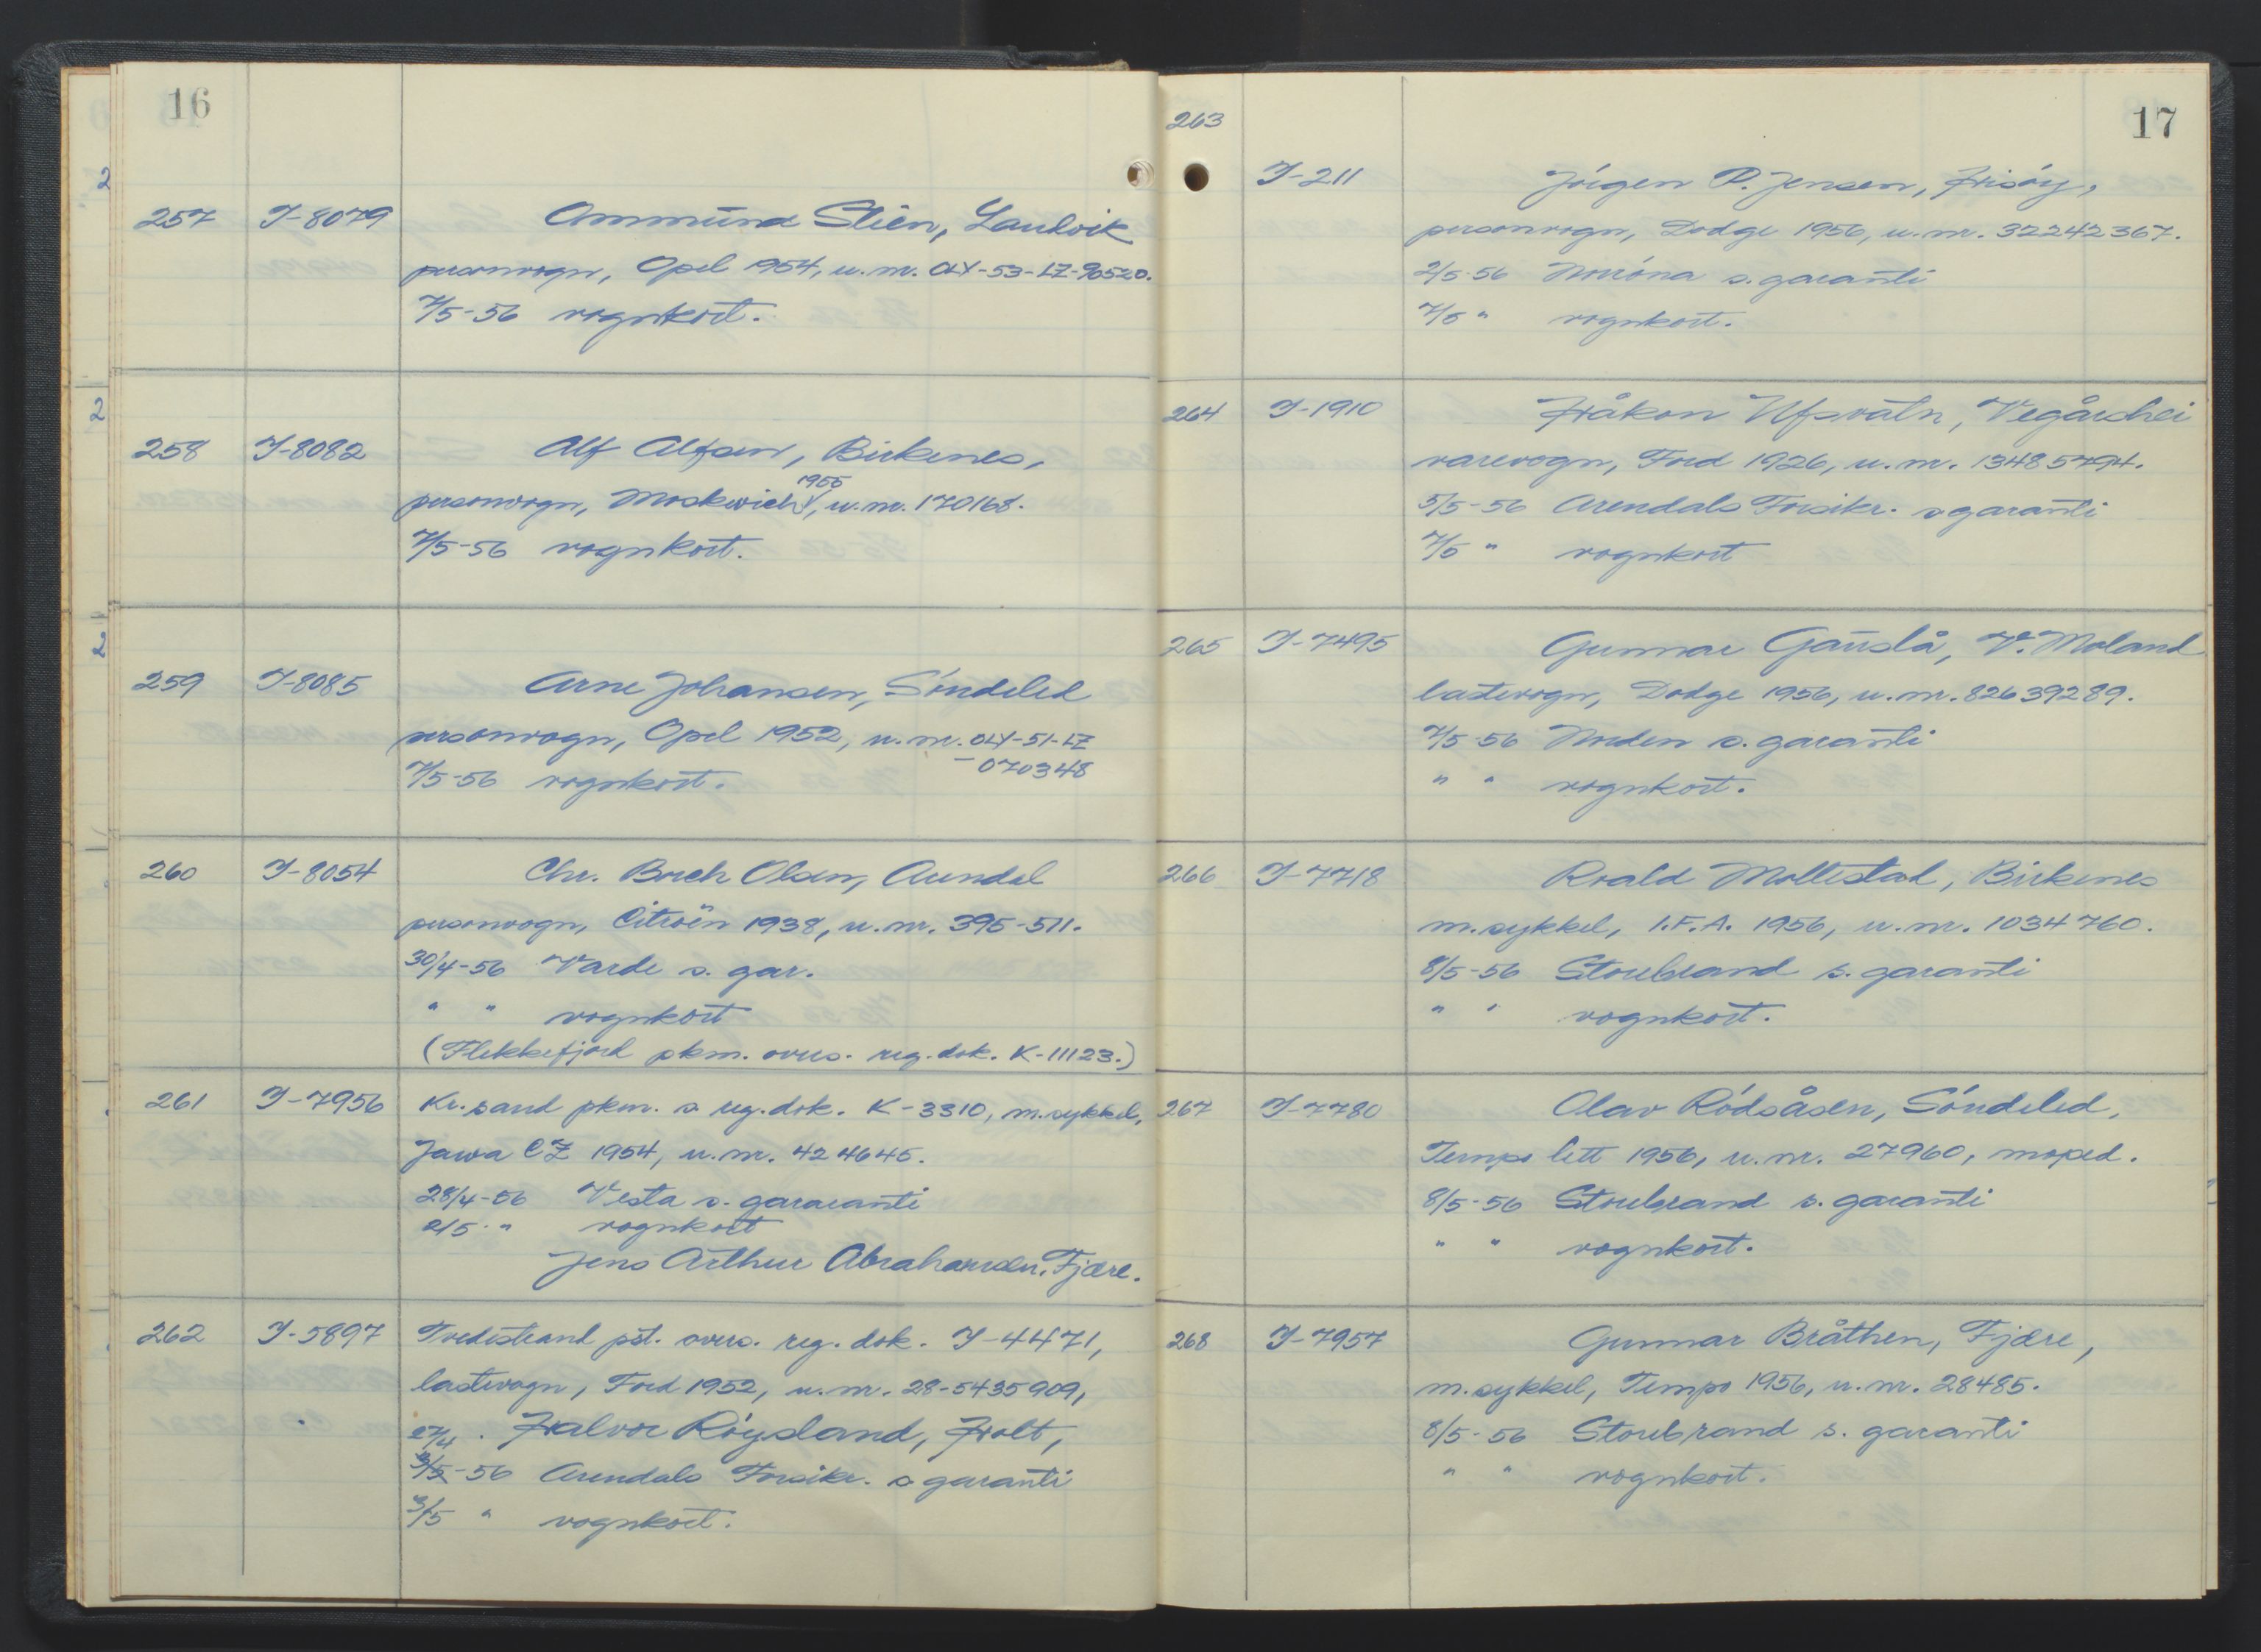 16
257 I-8079 Ommund Stien, Landvik
personvogn, Opel 1954, u.nr. OLY-53-LZ-90520.
7/5-56 vognkort.
258 I-8082 Alf Alfsen, Birkenes,
personvogn, Moskwich 1955, u.nr. 170168.
7/5-56 vognkort.
259 I-8085 Arne Johansen, Söndeled
personvogn, Opel 1952, u.nr. OLY-51-LZ
-070348
7/5-56 vognkort.
260 I-8054 Chr. Borch Olsen, Arendal
personvogn, Citroën 1938, u.nr. 395-511.
30/4-56 Varde s. gar.
" " vognkort
(Flekkefjord pkm. overs. reg. dok. K-11123.)
261 I-7956 Kr.sand pkm. s reg.dok. K-3310, m.sykkel,
Jawa CZ 1954, u.nr. 424645.
28/4-56 Vesta s. gararanti
2/5 - " vognkort
Jens Arthur Abrahamsen, Fjære.
262 I-5897 Tvedestrand pst. overs. reg. dok. I-4471,
lastevogn, Ford 1952, u.nr. 28-5435909,
27/4 . Halvor Röysland, Holt,
3/5-56 Arendals Forsikr. s garanti
3/5 " vognkort.
17
263 I-211 Jörgen P. Jensen, Hisöy,
personvogn, Dodge 1956, u.nr. 32242367.
2/5-56 Norröna s. garanti
7/5 " vognkort.
264 I-1910 Håkon Ufsvatn, Vegårshei
varevogn, Ford 1926, u.nr. 13485794.
5/5-56 Arendals Forsikr. s garanti
7/5 " vognkort
265 I-7495 Gunnar Gauslå, V. Moland
lastevogn, Dodge 1956, u.nr. 82639289.
7/5-56 Norden s. garanti
" " vognkort.
266 I-7718 Roald Mollestad, Birkenes
m.sykkel, I.F.A. 1956, u.nr. 1034760.
8/5-56 Storebrand s. garanti
" " vognkort.
267 I-7780 Olav Rödsåsen, Söndeled,
Tempo lett 1956, u.nr. 27960, moped.
8/5-56 Storebrand s. garanti
" " vognkort.
268 I-7957 Gunnar Bråthen, Fjære,
m.sykkel, Tempo 1956, u.nr. 28485.
8/5-56 Storebrand s. garanti
" " vognkort.